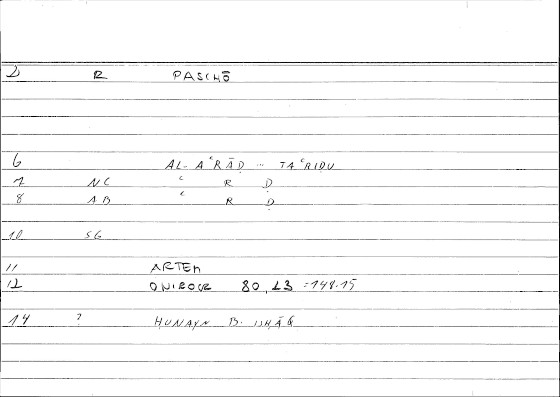 2 R PASCHŌ
6 AL-AʿRĀḌ - TAʿRIḌU
7 NC ʿ R Ḍ
8 AB ʿ R Ḍ
10 SG
11 ARTEM
12 ONIROCR 80,23 =148.15
14 ? ḤUNAYN B. ISḤĀQ